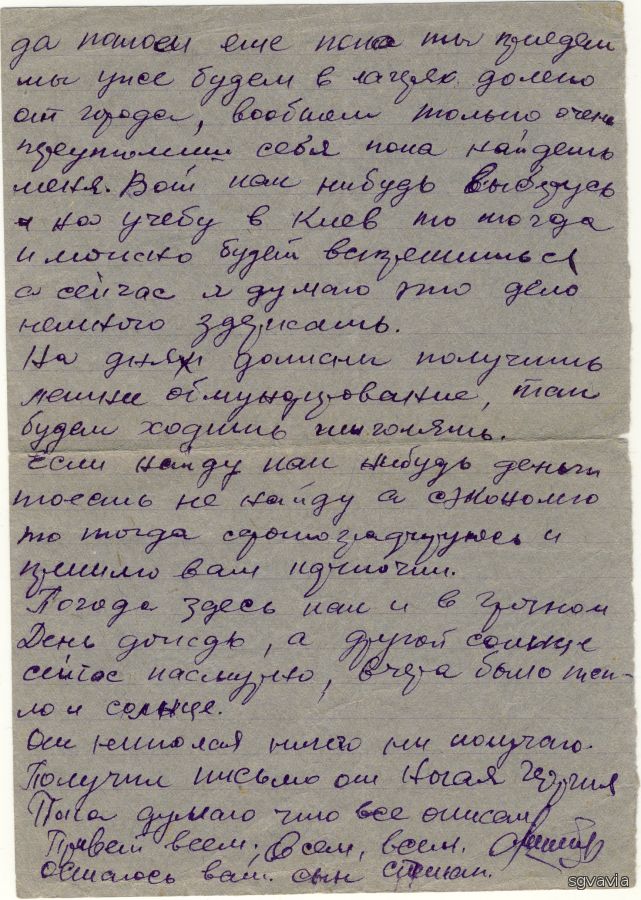 да потом еще пока ты приедеш
мы уже будем в лагерях. далеко
от города, вообщем только очень
переутомиш себя пока найдешь
меня. Вот как нибудь выберусь
на учебу в Киев то тогда
и можно будет встретиться
а сейчас я думаю это дело
немного здержать.
На днях должны получить
летнее обмундирование, так
будем ходить
Если найду как нибудь деньги
тоесть не найду а съэкономлю
то тогда сфотографируюсь и
пришлю вам карточки.
Погода здесь как и в Грозном
День дождь, а другой солнце
сейчас пасмурно, вчера было теп-
ло и солнце.
От николая ничего ни получаю.
Получил письмо от Ногая Георгия
Пока думаю что все описал
Привет всем, Всем, всем.
остаюсь ваш. сын степан.
sgvavia